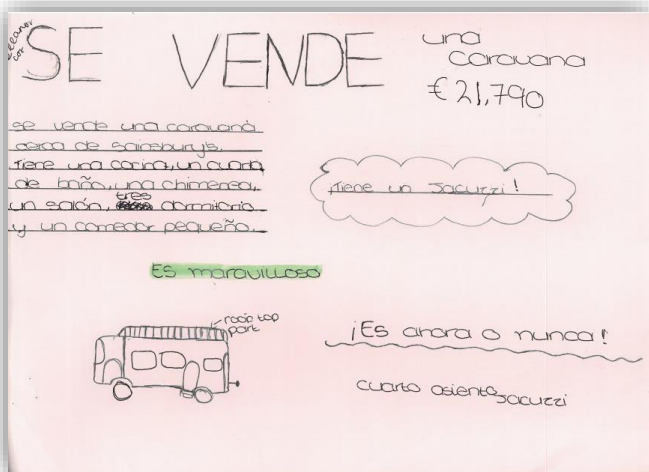 SE VENDE
una
caravana
€21,790
se vende una caravana
cerca de sainsbury's.
Tiene una cocina, un cuarto
de baño, una chimenea,
un salón, tres dormitorio
y un comedor pequeño.
¡Tiene un Jacuzzi!
ES maravilloso
roof top
part
¡Es ahora o nunca!
cuarto asiento Jacuzzi